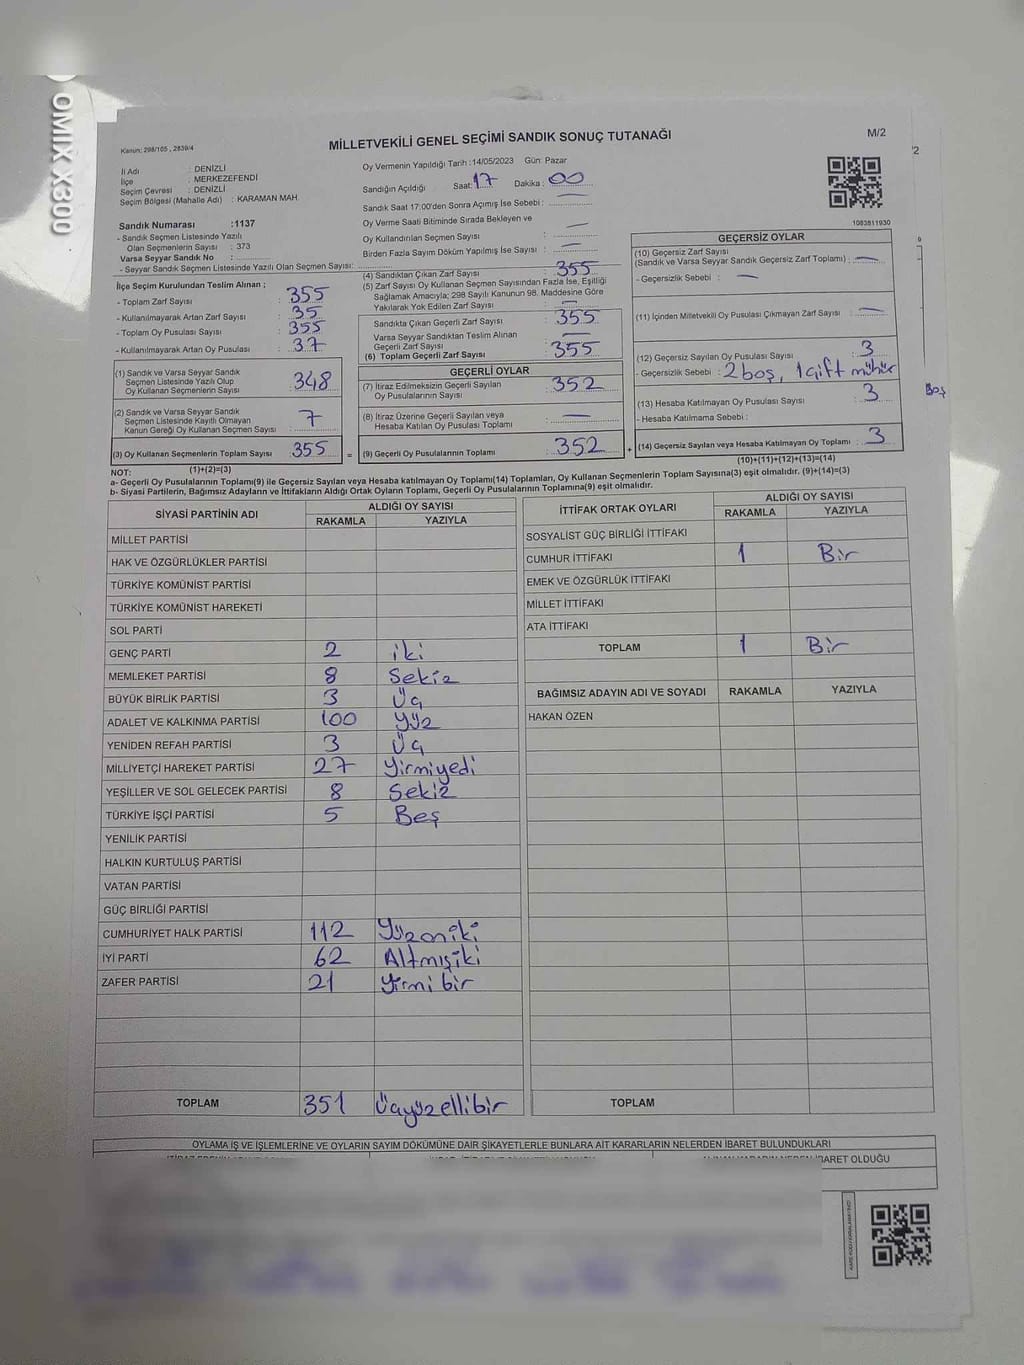 OMIX X300
MİLLETVEKİLİ GENEL SEÇİMİ SANDIK SONUÇ TUTANAĞI
M/2
Kanun: 298/105 , 2839/4
İl Adı : DENİZLİ
İlçe : MERKEZEFENDİ
Seçim Çevresi : DENİZLİ
Seçim Bölgesi (Mahalle Adı) : KARAMAN MAH.
Sandık Numarası :1137
- Sandık Seçmen Listesinde Yazılı
Olan Seçmenlerin Sayısı : 373
Varsa Seyyar Sandık No :
- Seyyar Sandık Seçmen Listesinde Yazılı Olan Seçmen Sayısı:
Oy Vermenin Yapıldığı Tarih :14/05/2023 Gün: Pazar
Sandığın Açıldığı Saat: 17 Dakika : 00
Sandık Saat 17:00'den Sonra Açımış İse Sebebi : —
Oy Verme Saati Bitiminde Sırada Bekleyen ve
Oy Kullandırılan Seçmen Sayısı : —
Birden Fazla Sayım Döküm Yapılmış İse Sayısı : —
1083811930
İlçe Seçim Kurulundan Teslim Alınan ;
- Toplam Zarf Sayısı : 355
- Kullanılmayarak Artan Zarf Sayısı : 35
- Toplam Oy Pusulası Sayısı : 355
- Kullanılmayarak Artan Oy Pusulası : 37
(1) Sandık ve Varsa Seyyar Sandık
Seçmen Listesinde Yazılı Olup
Oy Kullanan Seçmenlerin Sayısı : 348
(2) Sandık ve Varsa Seyyar Sandık
Seçmen Listesinde Kayıtlı Olmayan
Kanun Gereği Oy Kullanan Seçmen Sayısı : 7
(3) Oy Kullanan Seçmenlerin Toplam Sayısı : 355
(4) Sandıktan Çıkan Zarf Sayısı : 355
(5) Zarf Sayısı Oy Kullanan Seçmen Sayısından Fazla İse, Eşitliği
Sağlamak Amacıyla; 298 Sayılı Kanunun 98. Maddesine Göre
Yakılarak Yok Edilen Zarf Sayısı : —
Sandıkta Çıkan Geçerli Zarf Sayısı : 355
Varsa Seyyar Sandıktan Teslim Alınan
Geçerli Zarf Sayısı : —
(6) Toplam Geçerli Zarf Sayısı : 355
GEÇERLİ OYLAR
(7) İtiraz Edilmeksizin Geçerli Sayılan
Oy Pusulasının Sayısı : 352
(8) İtiraz Üzerine Geçerli Sayılan veya
Hesaba Katılan Oy Pusulası Toplamı : —
= (9) Geçerli Oy Pusulalarının Toplamı : 352
GEÇERSİZ OYLAR
(10) Geçersiz Zarf Sayısı
(Sandık ve Varsa Seyyar Sandık Geçersiz Zarf Toplamı) : —
- Geçersizlik Sebebi : —
(11) İçinden Milletvekili Oy Pusulası Çıkmayan Zarf Sayısı : —
(12) Geçersiz Sayılan Oy Pusulası Sayısı : 3
- Geçersizlik Sebebi : 2 boş, 1 çift mühür
Boş
(13) Hesaba Katılmayan Oy Pusulası Sayısı : 3
- Hesaba Katılmama Sebebi :
+ (14) Geçersiz Sayılan veya Hesaba Katılmayan Oy Toplamı : 3
NOT: (1)+(2)=(3)
(10)+(11)+(12)+(13)=(14)
a- Geçerli Oy Pusulasının Toplamı(9) ile Geçersiz Sayılan veya Hesaba katılmayan Oy Toplamı(14) Toplamları, Oy Kullanan Seçmenlerin Toplam Sayısına(3) eşit olmalıdır. (9)+(14)=(3)
b- Siyasi Partilerin, Bağımsız Adayların ve İttifakların Aldığı Ortak Oyların Toplamı, Geçerli Oy Pusulalarının Toplamına(9) eşit olmalıdır.
SİYASİ PARTİNİN ADI ALDIĞI OY SAYISI
RAKAMLA YAZIYLA
MİLLET PARTİSİ
HAK VE ÖZGÜRLÜKLER PARTİSİ
TÜRKİYE KOMÜNİST PARTİSİ
TÜRKİYE KOMÜNİST HAREKETİ
SOL PARTİ
GENÇ PARTİ 2 iki
MEMLEKET PARTİSİ 8 Sekiz
BÜYÜK BİRLİK PARTİSİ 3 Üç
ADALET VE KALKINMA PARTİSİ 100 Yüz
YENİDEN REFAH PARTİSİ 3 Üç
MİLLİYETÇİ HAREKET PARTİSİ 27 Yirmiyedi
YEŞİLLER VE SOL GELECEK PARTİSİ 8 Sekiz
TÜRKİYE İŞÇİ PARTİSİ 5 Beş
YENİLİK PARTİSİ
HALKIN KURTULUŞ PARTİSİ
VATAN PARTİSİ
GÜÇ BİRLİĞİ PARTİSİ
CUMHURİYET HALK PARTİSİ 112 Yüzoniki
İYİ PARTİ 62 Altmışiki
ZAFER PARTİSİ 21 Yirmi bir
TOPLAM 351 Üçyüzellibir
İTTİFAK ORTAK OYLARI ALDIĞI OY SAYISI
RAKAMLA YAZIYLA
SOSYALİST GÜÇ BİRLİĞİ İTTİFAKI
CUMHUR İTTİFAKI 1 Bir
EMEK VE ÖZGÜRLÜK İTTİFAKI
MİLLET İTTİFAKI
ATA İTTİFAKI
TOPLAM 1 Bir
BAĞIMSIZ ADAYIN ADI VE SOYADI RAKAMLA YAZIYLA
HAKAN ÖZEN
TOPLAM
OYLAMA İŞ VE İŞLEMLERİNE VE OYLARIN SAYIM DÖKÜMÜNE DAİR ŞİKAYETLERLE BUNLARA AİT KARARLARIN NELERDEN İBARET BULUNDUKLARI
İBARET OLDUĞU